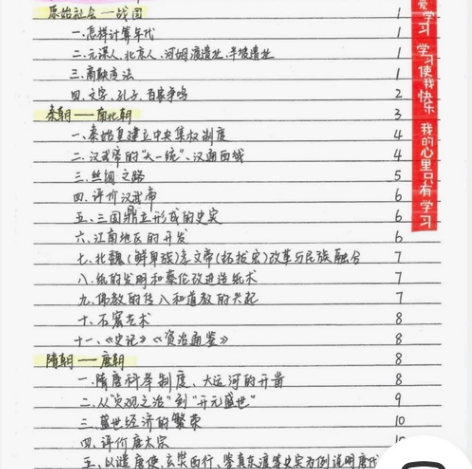 原始社会——战国 1
一.怎样计算年代 1
二.元谋人、北京人、河姆渡遗址、半坡遗址 1
三.商鞅变法 1
四.文字、孔子、百家争鸣 2
秦朝——南北朝 3
一、秦始皇建立中央集权制度 4
二、汉武帝的"大一统"、汉通西域 4
三.丝绸之路 5
四.评价汉武帝 6
五、三国鼎立形成的史实 6
六、江南地区的开发 6
七.北魏(鲜卑族)孝文帝(拓拔宏)改革与民族融合 7
八.纸的发明和蔡伦改进造纸术 7
九.佛教的传入和道教的兴起 7
十、石窟艺术 8
十一、《史记》《资治通鉴》 8
隋朝——唐朝 8
一.隋唐科举制度、大运河的开凿 8
二.从"贞观之治"到"开元盛世" 9
三.盛世经济的繁荣 10
四.评价唐太宗 10
五、以遣唐使、玄奘西行、鉴真东渡等史实为例说明唐代
爱学习 学习使我快乐 我的心里只有学习